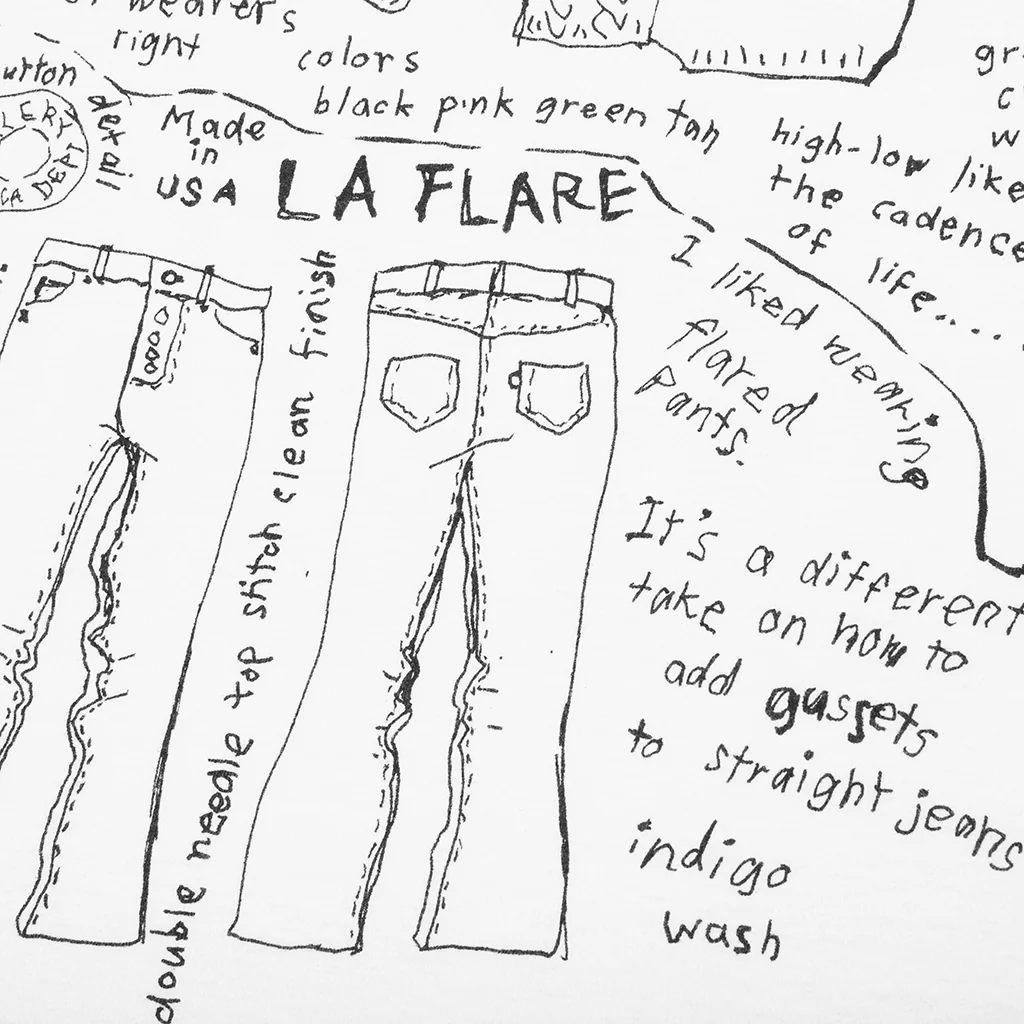 wearers
right
colors
black pink green tan
button
detail
LERY
DEPT
CA
Made
in
USA
LA FLARE
high-low like
the cadence
of life....
I liked wearing
flared
pants.
It's a different
take on how to
add gussets
to straight jeans
indigo
wash
double needle top stitch clean finish